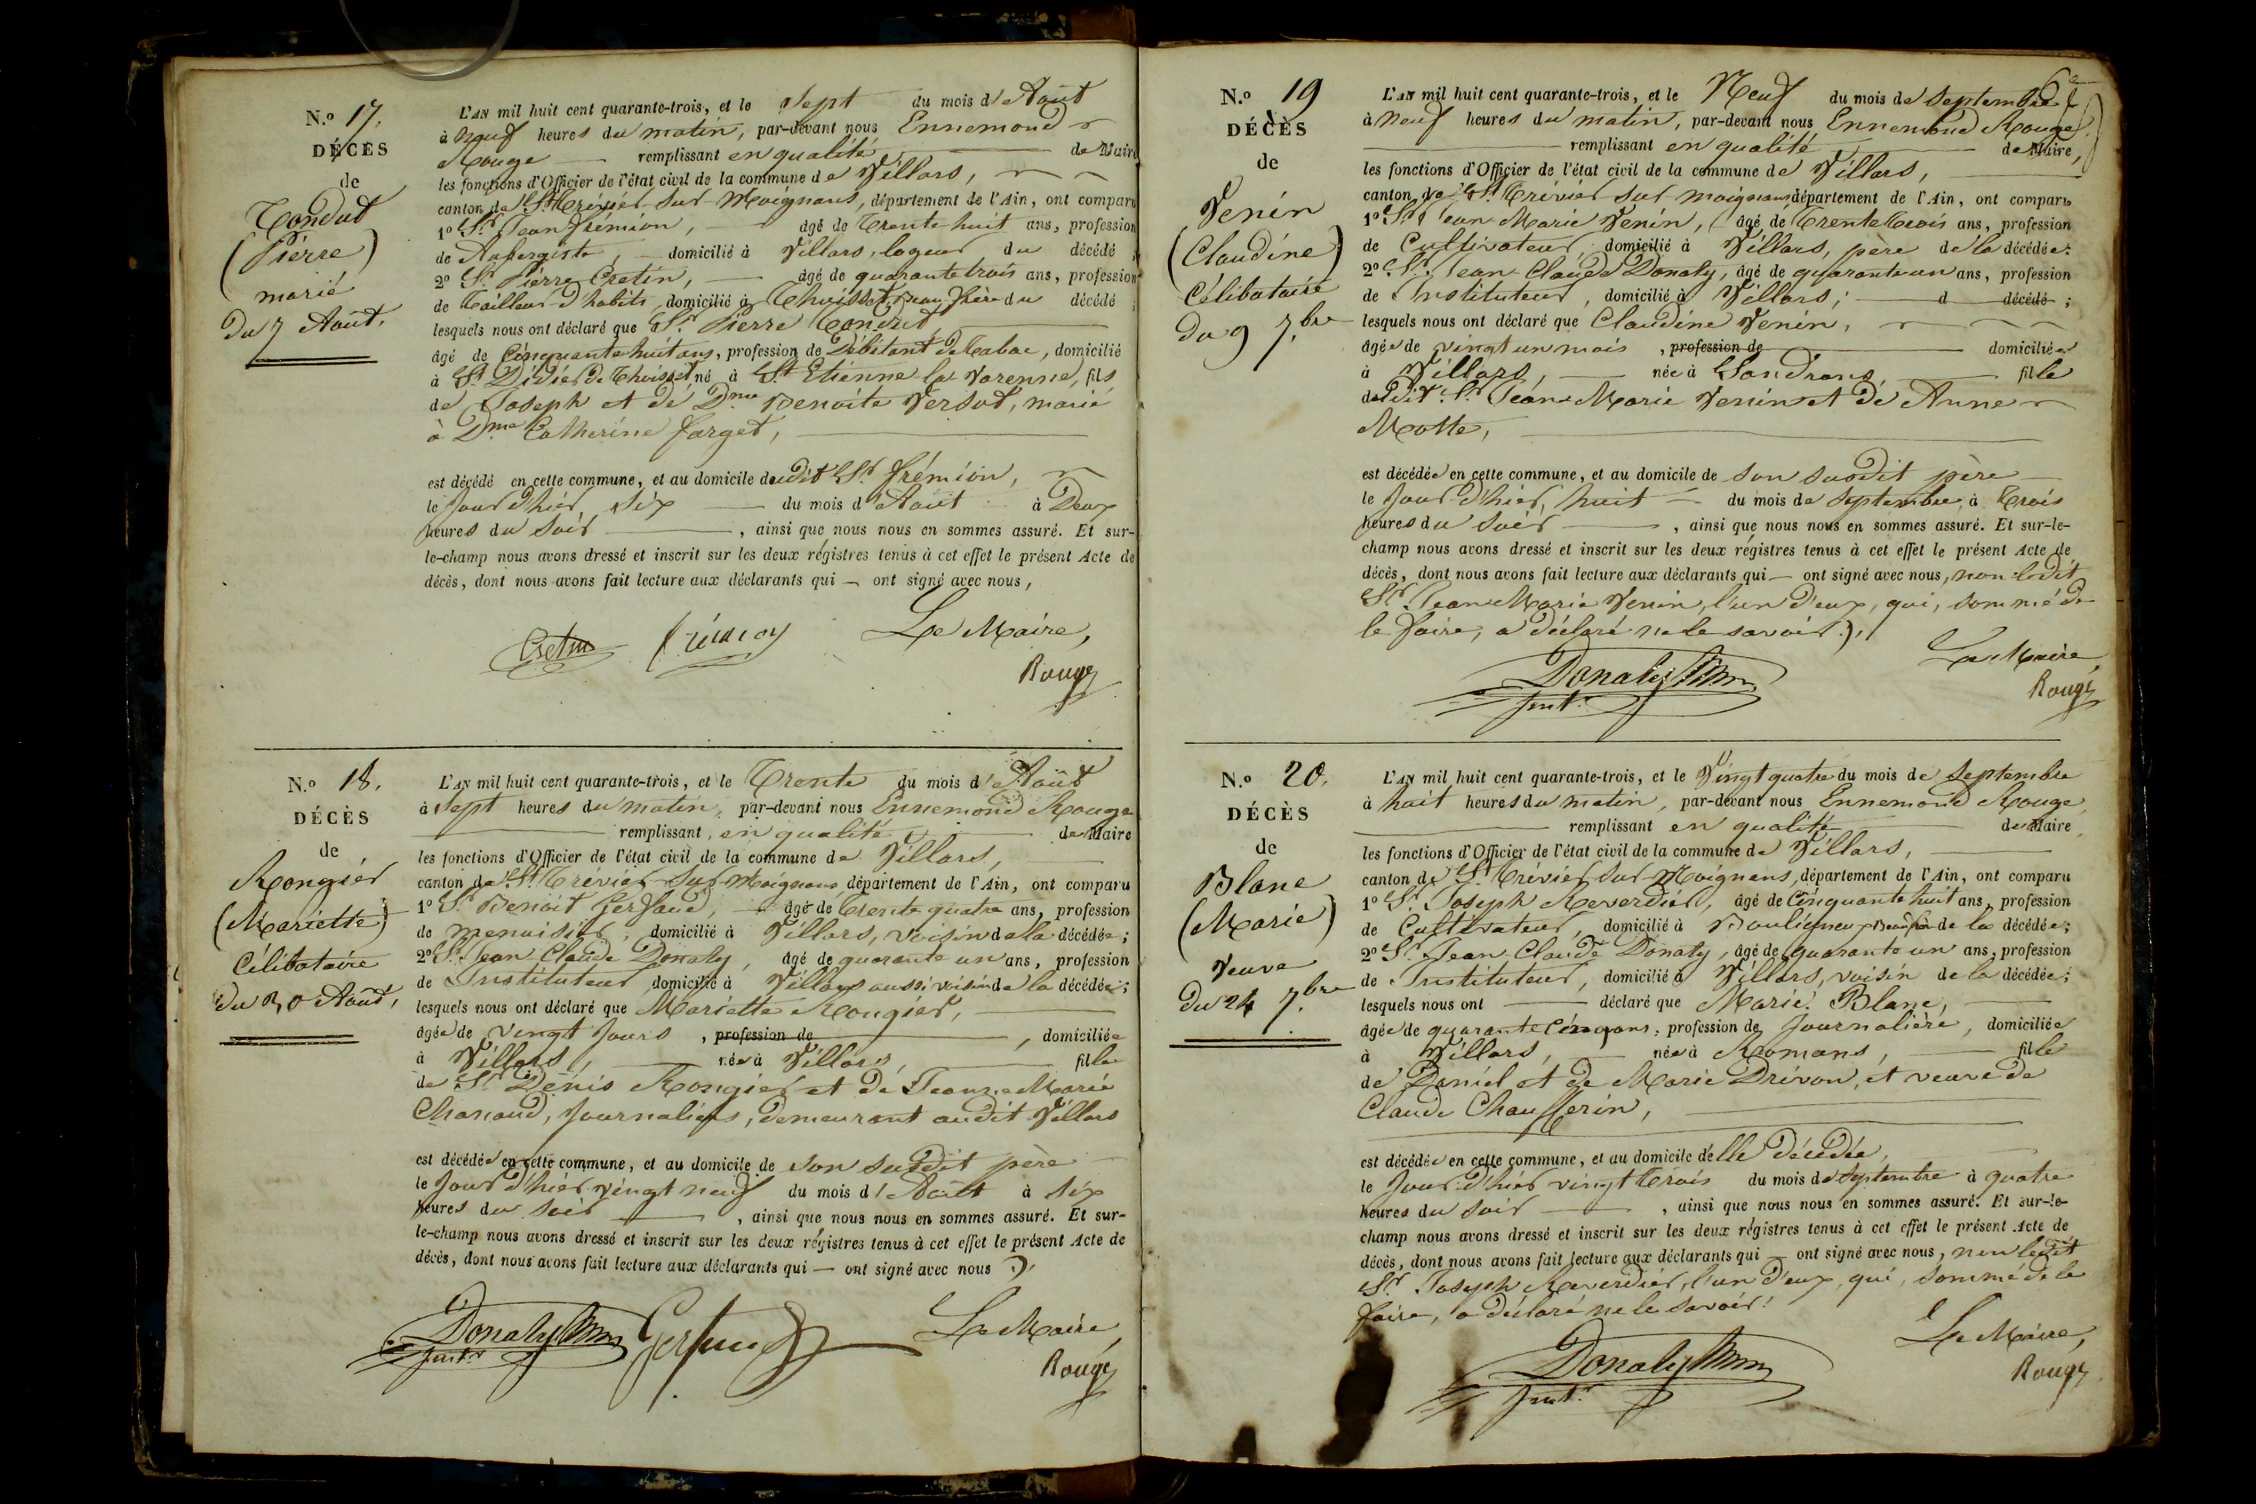 N.º 17.
DÉCÈS
de
Condut
(Pierre)
marié
Du 7 Août.
L'AN mil huit cent quarante-trois, et le Sept du mois d'Août
à neuf heures du matin, par-devant nous Ennemond
Rouge remplissant en qualité de Maire
les fonctions d'Officier de l'état civil de la commune de Villars,
canton de St. Trévier sur Moignans, département de l'Ain, ont comparu
1º Sr. Jean Frémion, âgé de Trente huit ans, profession
de Aubergiste, domicilié à Villars, logeur du décédé
2º Sr. Pierre Cretin, âgé de quarante trois ans, profession
de Tailleur d'habits, domicilié à Thoissey, beau frère du décédé ;
lesquels nous ont déclaré que Sr. Pierre
âgé de Cinquante huit ans, profession de Débitant de Tabac, domicilié
à St. Didier de Thoissey né à St. Etienne la Varenne, fils
de Joseph et de Dme Benoite Versut, marié
à Dme Catherine Farget,
est décédé en cette commune, et au domicile dudit Sr. Frémion,
le Jour d'hier, six du mois d'Août à Deux
heures du soir , ainsi que nous nous en sommes assuré. Et sur-
le-champ nous avons dressé et inscrit sur les deux régistres tenus à cet effet le présent Acte de
décès, dont nous avons fait lecture aux déclarants qui — ont signé avec nous,
Cretin Frémion Le Maire,
Rouge
N.º 18.
DÉCÈS
de
Rongier
(Mariette)
Célibataire
Du 30 Août,
L'AN mil huit cent quarante-trois, et le Trente du mois d'Août
à Sept heures du matin, par-devant nous Ennemond Rouge
remplissant en qualité de Maire
les fonctions d'Officier de l'état civil de la commune de Villars,
canton de St. Trévier sur Moignans département de l'Ain, ont comparu
1º Sr. Benoit Gerfaud, âgé de trente quatre ans, profession
de menuisier, domicilié à Villars, voisin de la décédée ;
2º Sr. Jean Claude Donaty, âgé de quarante un ans, profession
de Instituteur domicilié à Villars aussi voisin de la décédée ;
lesquels nous ont déclaré que Mariette Rongier,
âgée de vingt Jours , profession de , domiciliée
à Villars, née à Villars, fille
de Sr. Denis Rongier et de Jeanne Marie
Chanaud, Journaliers, demeurant audit Villars
est décédée en cette commune, et au domicile de son susdit père
le Jour d'hier vingt neuf du mois d'Août à six
heures du soir , ainsi que nous nous en sommes assuré. Et sur-
le-champ nous avons dressé et inscrit sur les deux régistres tenus à cet effet le présent Acte de
décès, dont nous avons fait lecture aux déclarants qui — ont signé avec nous
Donaty Gerfaud Le Maire,
Rouge
6e
N.º 19
DÉCÈS
de
Venin
(Claudine)
Célibataire
Du 9 7.bre
L'AN mil huit cent quarante-trois, et le Neuf du mois de septembre
à neuf heures du matin, par-devant nous Ennemond Rouge
remplissant en qualité de Maire,
les fonctions d'Officier de l'état civil de la commune de Villars,
canton de St. Trévier sur Moignans département de l'Ain, ont comparu
1º Sr. Jean Marie Venin, âgé de Trente trois ans, profession
de Cultivateur domicilié à Villars, père de la décédée.
2º Sr. Jean Claude Donaty, âgé de quarante un ans, profession
de Instituteur, domicilié à Villars ; d décédé ;
lesquels nous ont déclaré que Claudine Venin,
âgée de vingt un mois , profession de domiciliée
à Villars, née à Sandrans fille
dudit Sr. Jean Marie Venin et de Anne
Motte,
est décédée en cette commune, et au domicile de son susdit père
le Jour d'hier, huit du mois de septembre, à Trois
heures du soir , ainsi que nous nous en sommes assuré. Et sur-le-
champ nous avons dressé et inscrit sur les deux régistres tenus à cet effet le présent Acte de
décès, dont nous avons fait lecture aux déclarants qui — ont signé avec nous, non ledit
Sr. Jean Marie Venin, l'un d'eux, qui, sommé de
le faire, a déclaré ne le savoir.
Donaty Le Maire,
Rouge
N.º 20.
DÉCÈS
de
Blanc
(Marie)
Veuve
Du 24 7.bre
L'AN mil huit cent quarante-trois, et le Vingt quatre du mois de septembre
à huit heures du matin, par-devant nous Ennemond Rouge,
remplissant en qualité de Maire
les fonctions d'Officier de l'état civil de la commune de Villars,
canton de St. Trévier sur Moignans, département de l'Ain, ont comparu
1º Sr. Joseph Reverdier, âgé de Cinquante huit ans, profession
de Cultivateur, domicilié à Bouligneux Beau frère de la décédée ;
2º Sr. Jean Claude Donaty, âgé de quarante un ans, profession
de Instituteur, domicilié à Villars, voisin de la décédée ;
lesquels nous ont déclaré que Marie Blanc,
âgée de quarante cinq ans, profession de Journalière, domiciliée
à Villars, née à Romans, fille
de Daniel et de Marie Drivon, et veuve de
Claude Chaufferin,
est décédée en cette commune, et au domicile d'elle décédée,
le Jour d'hier vingt trois du mois de septembre à quatre
heures du soir , ainsi que nous nous en sommes assuré. Et sur-le-
champ nous avons dressé et inscrit sur les deux régistres tenus à cet effet le présent Acte de
décès, dont nous avons fait lecture aux déclarants qui — ont signé avec nous, non ledit
Sr. Joseph Reverdier, l'un d'eux, qui, sommé de le
faire, a déclaré ne le savoir.
Donaty Le Maire,
Rouge